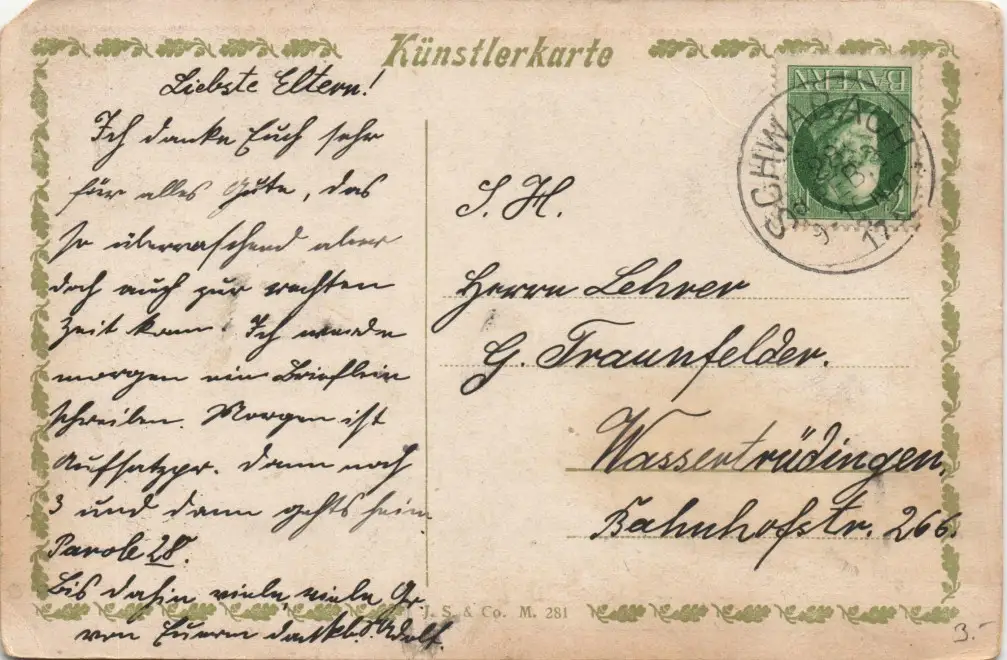 Künstlerkarte
Liebste Eltern!
Ich danke Euch sehr
für alles Gute, das
so überraschend aber
doch auch zur rechten
Zeit kam. Ich werde
morgen ein Brieflein
schreiben. Morgen ist
Aufsatzpr. Dann noch
3 und dann gehts heim
Parole 28.
Bis dahin viele, viele Gr.
von Euerm dankb. Adolf.
BAYERN
SCHWABACH
FEB.
17
S. H.
Herrn Lehrer
G. Traunfelder.
Wassertrüdingen,
Bahnhofstr. 266.
J. S. & Co. M. 281
3.-